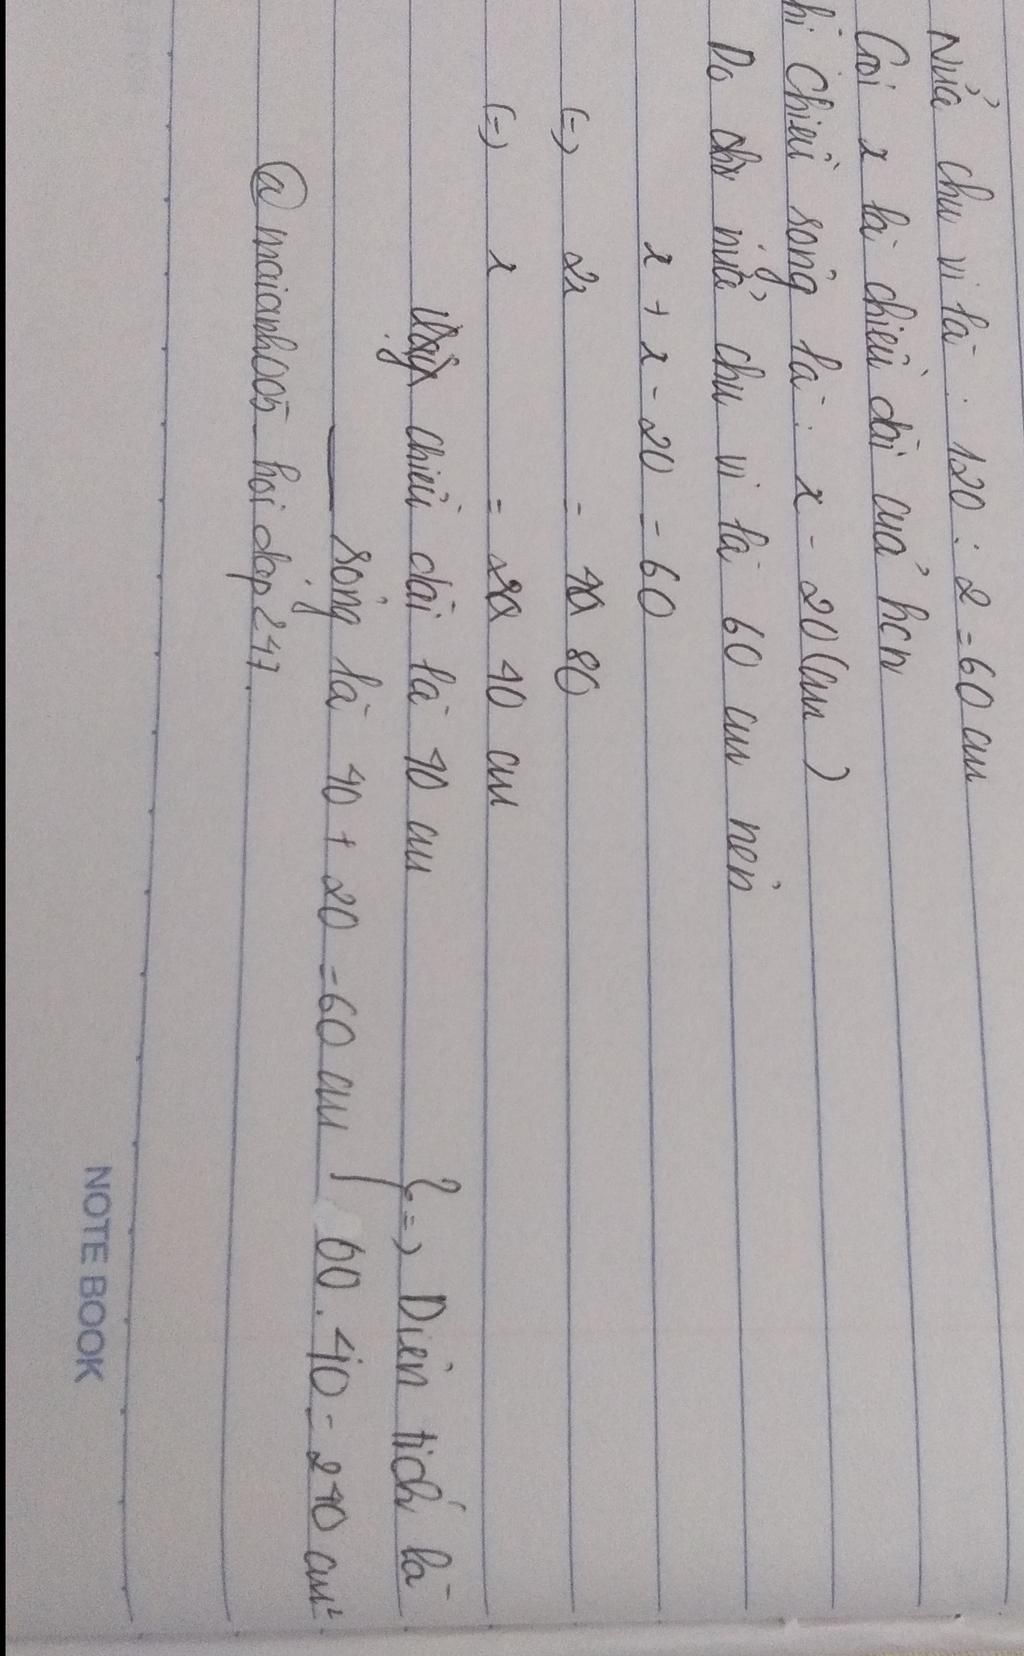 Nửa chu vi là : 120 : 2 = 60 cm
Gọi x là chiều dài của hcn
hì chiều rộng là : x - 20 (cm)
Do nửa chu vi là 60 cm nên
x + x - 20 = 60
(=) 2x = 80
(=) x = 40 cm
Vậy chiều dài là 40 cm
rộng là 40 + 20 = 60 cm } => Diện tích là
60 . 40 = 240 cm²
@maianh005 hoidap247.
NOTE BOOK